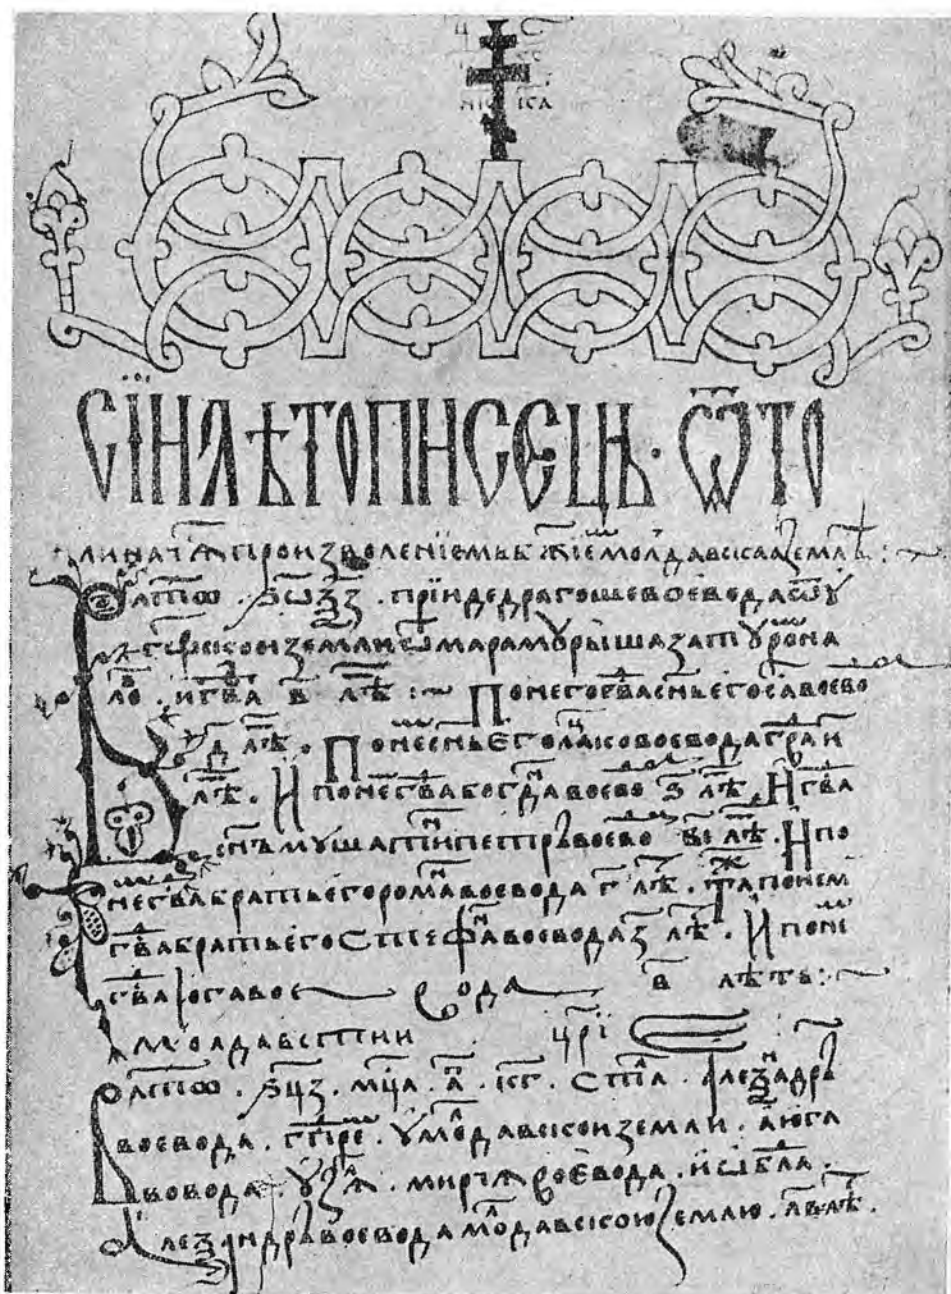 НІ КА
СЇИ ЛѢТОПИСЕЦЬ · ѾТО
ЛИ НАЧѦ ПРОИЗВОЛЕНЇЕМЬ БЖЇЕ МОЛДАВСКАА ЗЕМЛѢ :~
В ЛѢТѠ · ҂ЅѠѮЗ · ПРЇИДЕ ДРАГОШЕ ВОЕВОДА Ѿ У
ГРЬСКОИ ЗЕМЛИ Ѿ МАРАМУРЫША ЗА ТУРОМ НА
ЛО · И ГВА В ЛѢ :~ ПО НЕГО ГВА СНЬ ЕГО САС ВОЕВО
Д ЛѢ · ПО НЕ СНЬ ЕГО ЛАЦКО ВОЕВОДА ГВА И
ЛѢ · И ПО НЕ ГВА БОГДАН ВОЕВО Ѕ ЛѢ · И ГВА
СНЪ МУШАТИН ПЕТРЬ ВОЕВО ВІ ЛѢ · И ПО
НЕ ГВА БРАТЬ ЕГО РОМАН ВОЕВОДА Г ЛѢ · ТАЖ ПО НЕМ
ГВА БРАТЬ ЕГО СТЕФАН ВОЕВОДА З ЛѢ · И ПО НЕ
ГВА ЮГА ВОЕ ВОДА В ЛѢТѢ :~
МОЛДАВСТИИ ЦРЇ
В ЛѢТѠ · ҂ЅЦЗ · МЦА · АП · КГ · СТАЛ · АЛЕѮАНДРЬ
ВОЕВОДА · ГПРЕ · У МОЛДАВСКОИ ЗЕМЛИ · А ЮГА
ВОВОДА · УЗѦЛ · МИРЧѦ ВОЕВОДА · И ѠБЛА
АЛЕѮАНДРЬ ВОЕВОДА МОЛДАВСКОЮ ЗЕМЛЮ · ЛВ ЛѢ ·